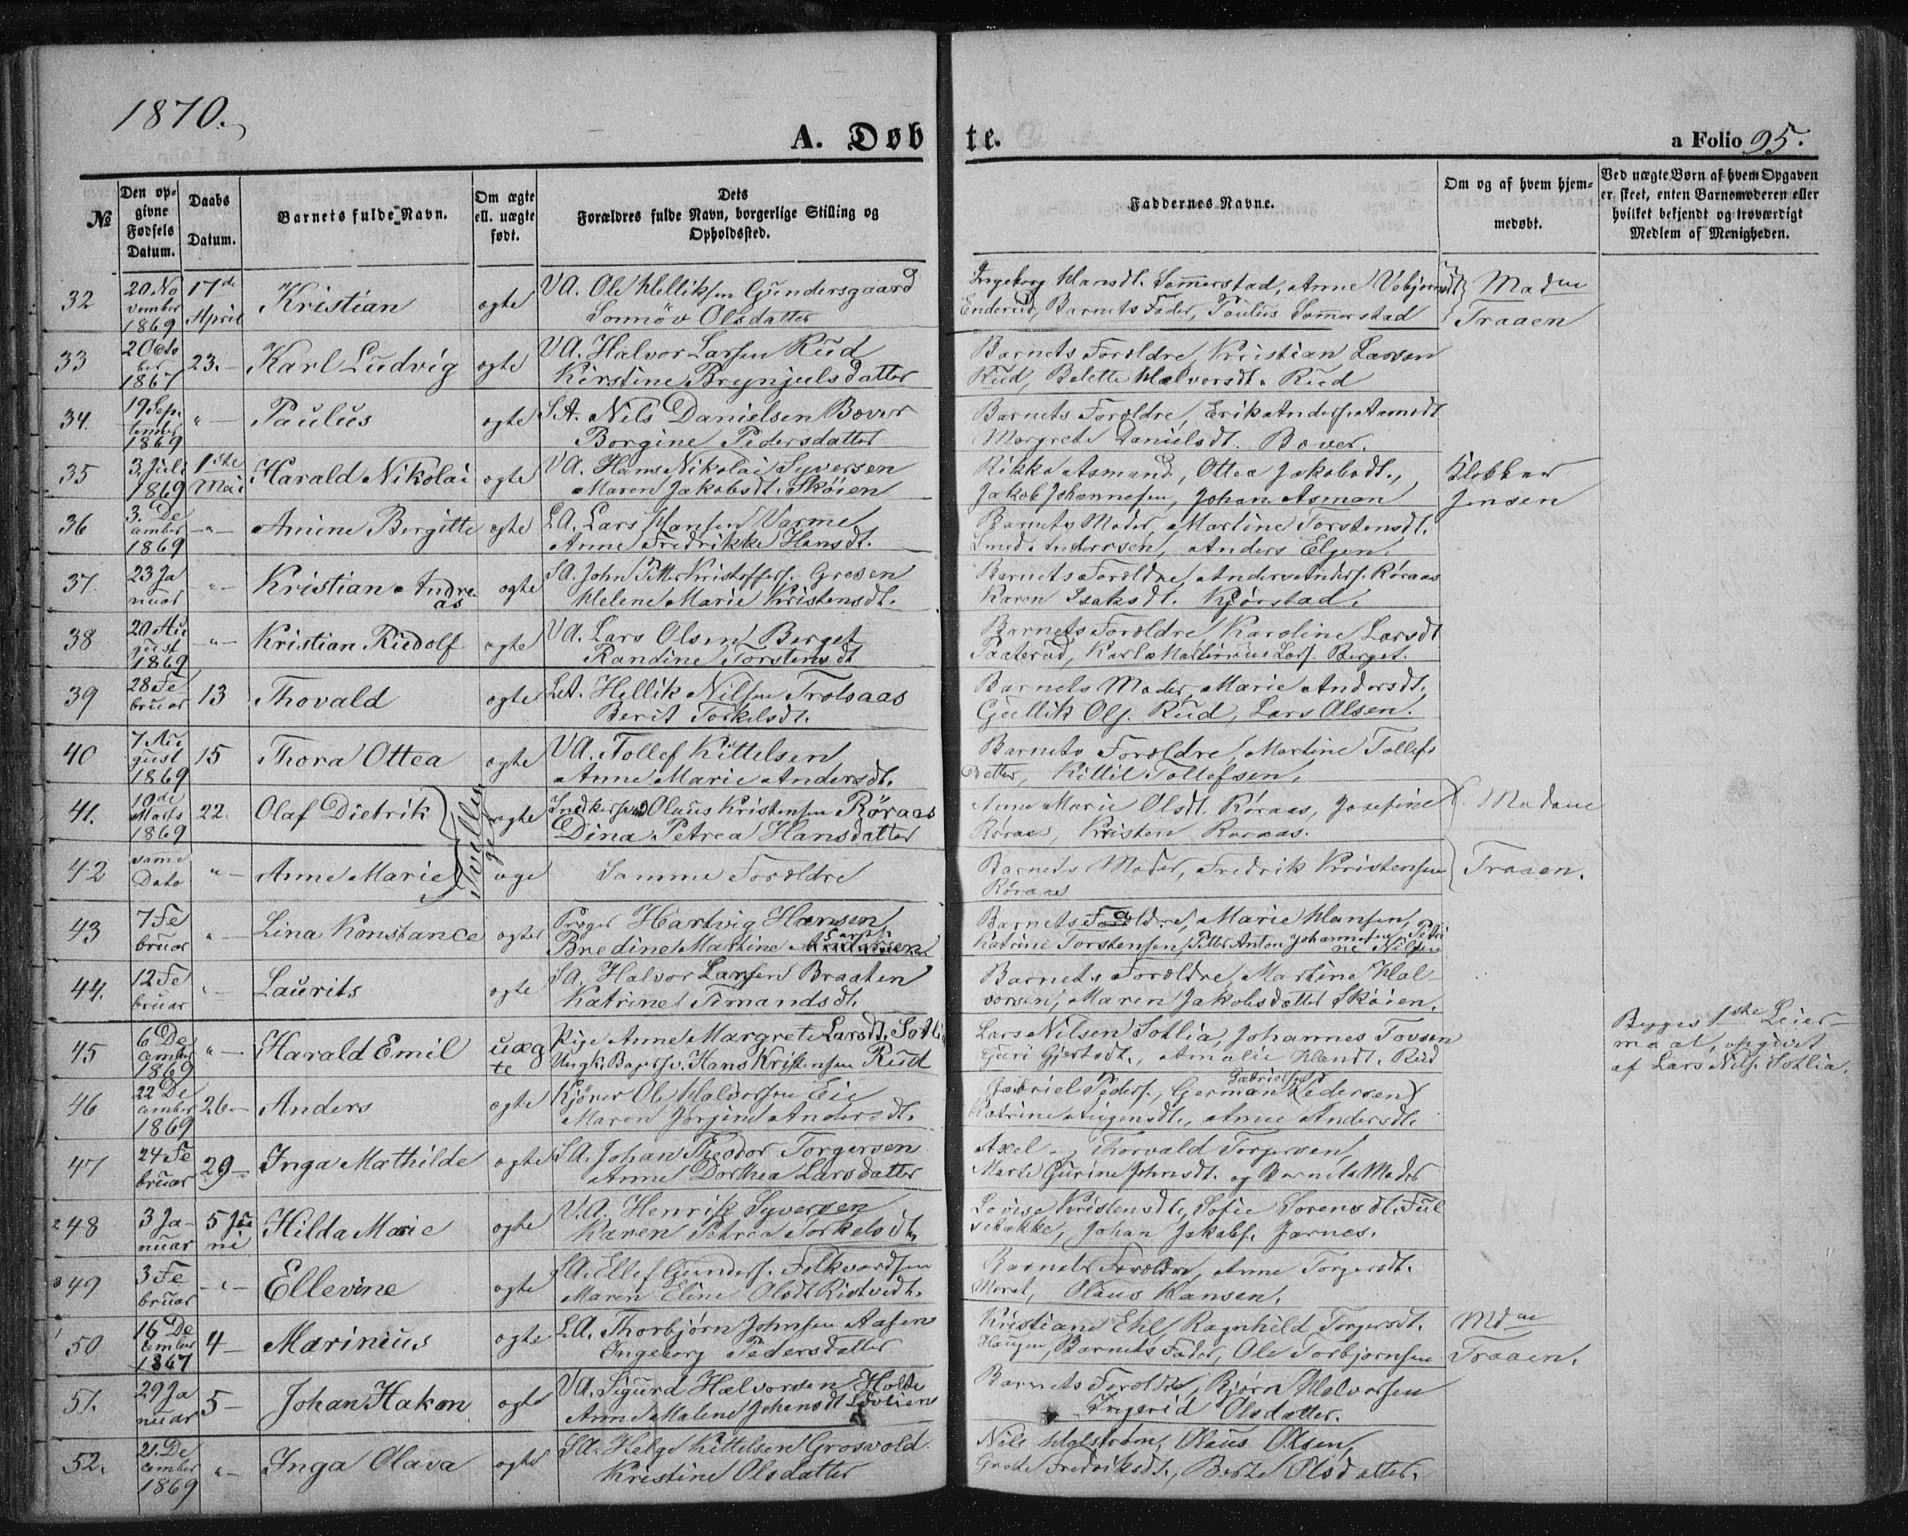 1870.
A. Døbte.
a Folio 95.
№
Den opgivne Fødsels Datum.
Daabs Datum.
Barnets fulde Navn.
Om ægte ell. uægte født.
Dets Forældres fulde Navn, borgerlige Stilling og Opholdssted.
Faddernes Navne.
Om og af hvem hjemmedøbt.
Ved uægte Børn af hvem Opgaven er skeet, enten Barnemoderen eller hvilket bekjendt og troværdigt Medlem af Menigheden.
32 20 November 1869 17de April Kristian ægte VA. Ole Helliksen Gundersgaard
Sønnöv Olsdatter
Ingeborg Hansdt. Sommerstad, Anne Vebjørnsdt
Enderud, Barnets Fader, Paulus Sommerstad
Madm Traaen
33 2 October 1867 23. Karl Ludvig ægte VA. Halvor Larsen Rud
Kirstine Brynjulsdatter
Barnets Forældre, Kristian Larsen
Rud, Belette Halvorsdt. Rud
34. 19 September 1869 " Paulus ægte SA. Nils Danielsen Bæver
Borgine Pedersdatter
Barnets Forældre, Erik Anders. Aamodt
Margrete Danielsdt. Bæver.
35 3. Juli 1869 1ste Mai Harald Nikolai ægte VA. Hans Nikolai Syversen
Maren Jakobsdt. Skøien
Rikka Asmand, Ottea Jakobsdt.,
Jakob Johannesen, Johan Asman
Klokker Jensen
36 3. December 1869 " Amine Bergitte ægte LA. Lars Hansen Varme
Anne Fredrikke Hansdt.
Barnets Moder, Martine Torstensdt.
Smed Andersen, Anders Elgen.
37. 23 Januar " Kristian Andreas ægte SA. John Petter Kristoffers. Gresen
Helene Marie Kristensdt.
Barnets Forældre, Anders Anders. Røraas
Karen Isaksdt. Kjørstad.
38 20 August 1869 " Kristian Rudolf ægte VA. Lars Olsen Berget
Randine Torstensdt
Barnets Forældre, Karoline Larsdt
Paaterud, Karl Martinius Lars. Berget.
39 28 Februar 13 Thovald ægte LA. Hellik Nilsen Trolsaas
Berit Torkelsdt.
Barnets Moder, Marie Andersdt.
Gullik Ols. Rud, Lars Olsen.
40 7 August 1869 15 Thora Ottea ægte VA. Tollef Kittelsen
Anne Marie Andersdt.
Barnets Forældre, Martine Tollefs
datter, Kittil Tollefsen.
41. 10de Marts 1869 22. Olaf Dietrik Tvillinge ægte Indkersv. Olaus Kristensen Røraas
Dina Petrea Hansdatter
Anne Marie Olsdt. Røraas, Josefine
Røraas, Kristen Røraas.
Madame
42 samme Dato " Anne Marie æge Samme Forældre
Barnets Moder, Fredrik Kristensen
Røraas
Traaen.
43 7 Februar " Lina Konstance ægte Præger Hartvig Hansen
Bredine Martine
Barnets Forældre, Marie Hansen,
Katrine Torstensen, Petter Anton Johannesen, Petrine Nilsen
44. 12 Februar " Laurits ægte SA. Halvor Larsen Braaten
Katrine Amandsdt.
Barnets Forældre, Martine Hal
vorsen, Maren Jakobsdatter Skøien.
45 6 December 1869 " Harald Emil uægte Pige Anne Margrete Larsdt. Sotlia
Ungk. Bagersv. Hans Kristensen Rud
Lars Nilsen Sotlia, Johannes Tovsen
Guri Gjertsdt., Amalie Hansdt. Rud
Begges 1ste Leiermaal, opgivet
af Lars Nils. Sotlia.
46 22 December 1869 26 Anders ægte Kjører Ole Halvorsen Eie
Maren Jørgine Andersdt.
Gabriel Peders., German Gabrielsen Pedersen
Katrine Augensdt., Anne Andersdt.
47 24 Februar 29 Inga Mathilde ægte SA. Johan Theodor Torgersen
Anne Dorthea Larsdatter
Axel, Thorvald Torgersen,
Marte Gurine Johnsdt. og Barnets Moder
48 3 Januar 5 Juni Hilda Marie ægte VA. Henrik Syversen
Karen Petrea Torkelsdt.
Lovise Kristensdt., Sofie Sorensdt. Ful
sebakke, Johan Jakobs. Jarnes.
49 3 Februar " Ellevine ægte SA. Ellef Gunders. Folkvordsen
Maren Eline Olsdt Ristvedt.
Barnets Forældre, Anne Torgersdt.
Moret, Olaus Hansen.
50 16 December 1867 4 Marinius ægte LA. Thorbjørn Johnsen Aasen
Ingeborg Pedersdatter
Kristiane Ehl, Ragnhild Torgersdt.
Haugen, Barnets Fader, Ole Torbjørnsen
Mdm Traaen.
51. 29 Januar 5 Johan Hakon ægte VA. Sigurd Halvorsen Holte
Anne Malene Johansdt Løvlien
Barnets Forældre, Bjørn Halvorsen
Ingerid Olsdatter.
52. 21. December 1869 " Inga Olava ægte SA. Helge Kittelsen Grosvold
Kristine Olsdatter
Nils Holstrøm, Olaus Olsen,
Grete Fredriksdt., Berte Olsdatter.